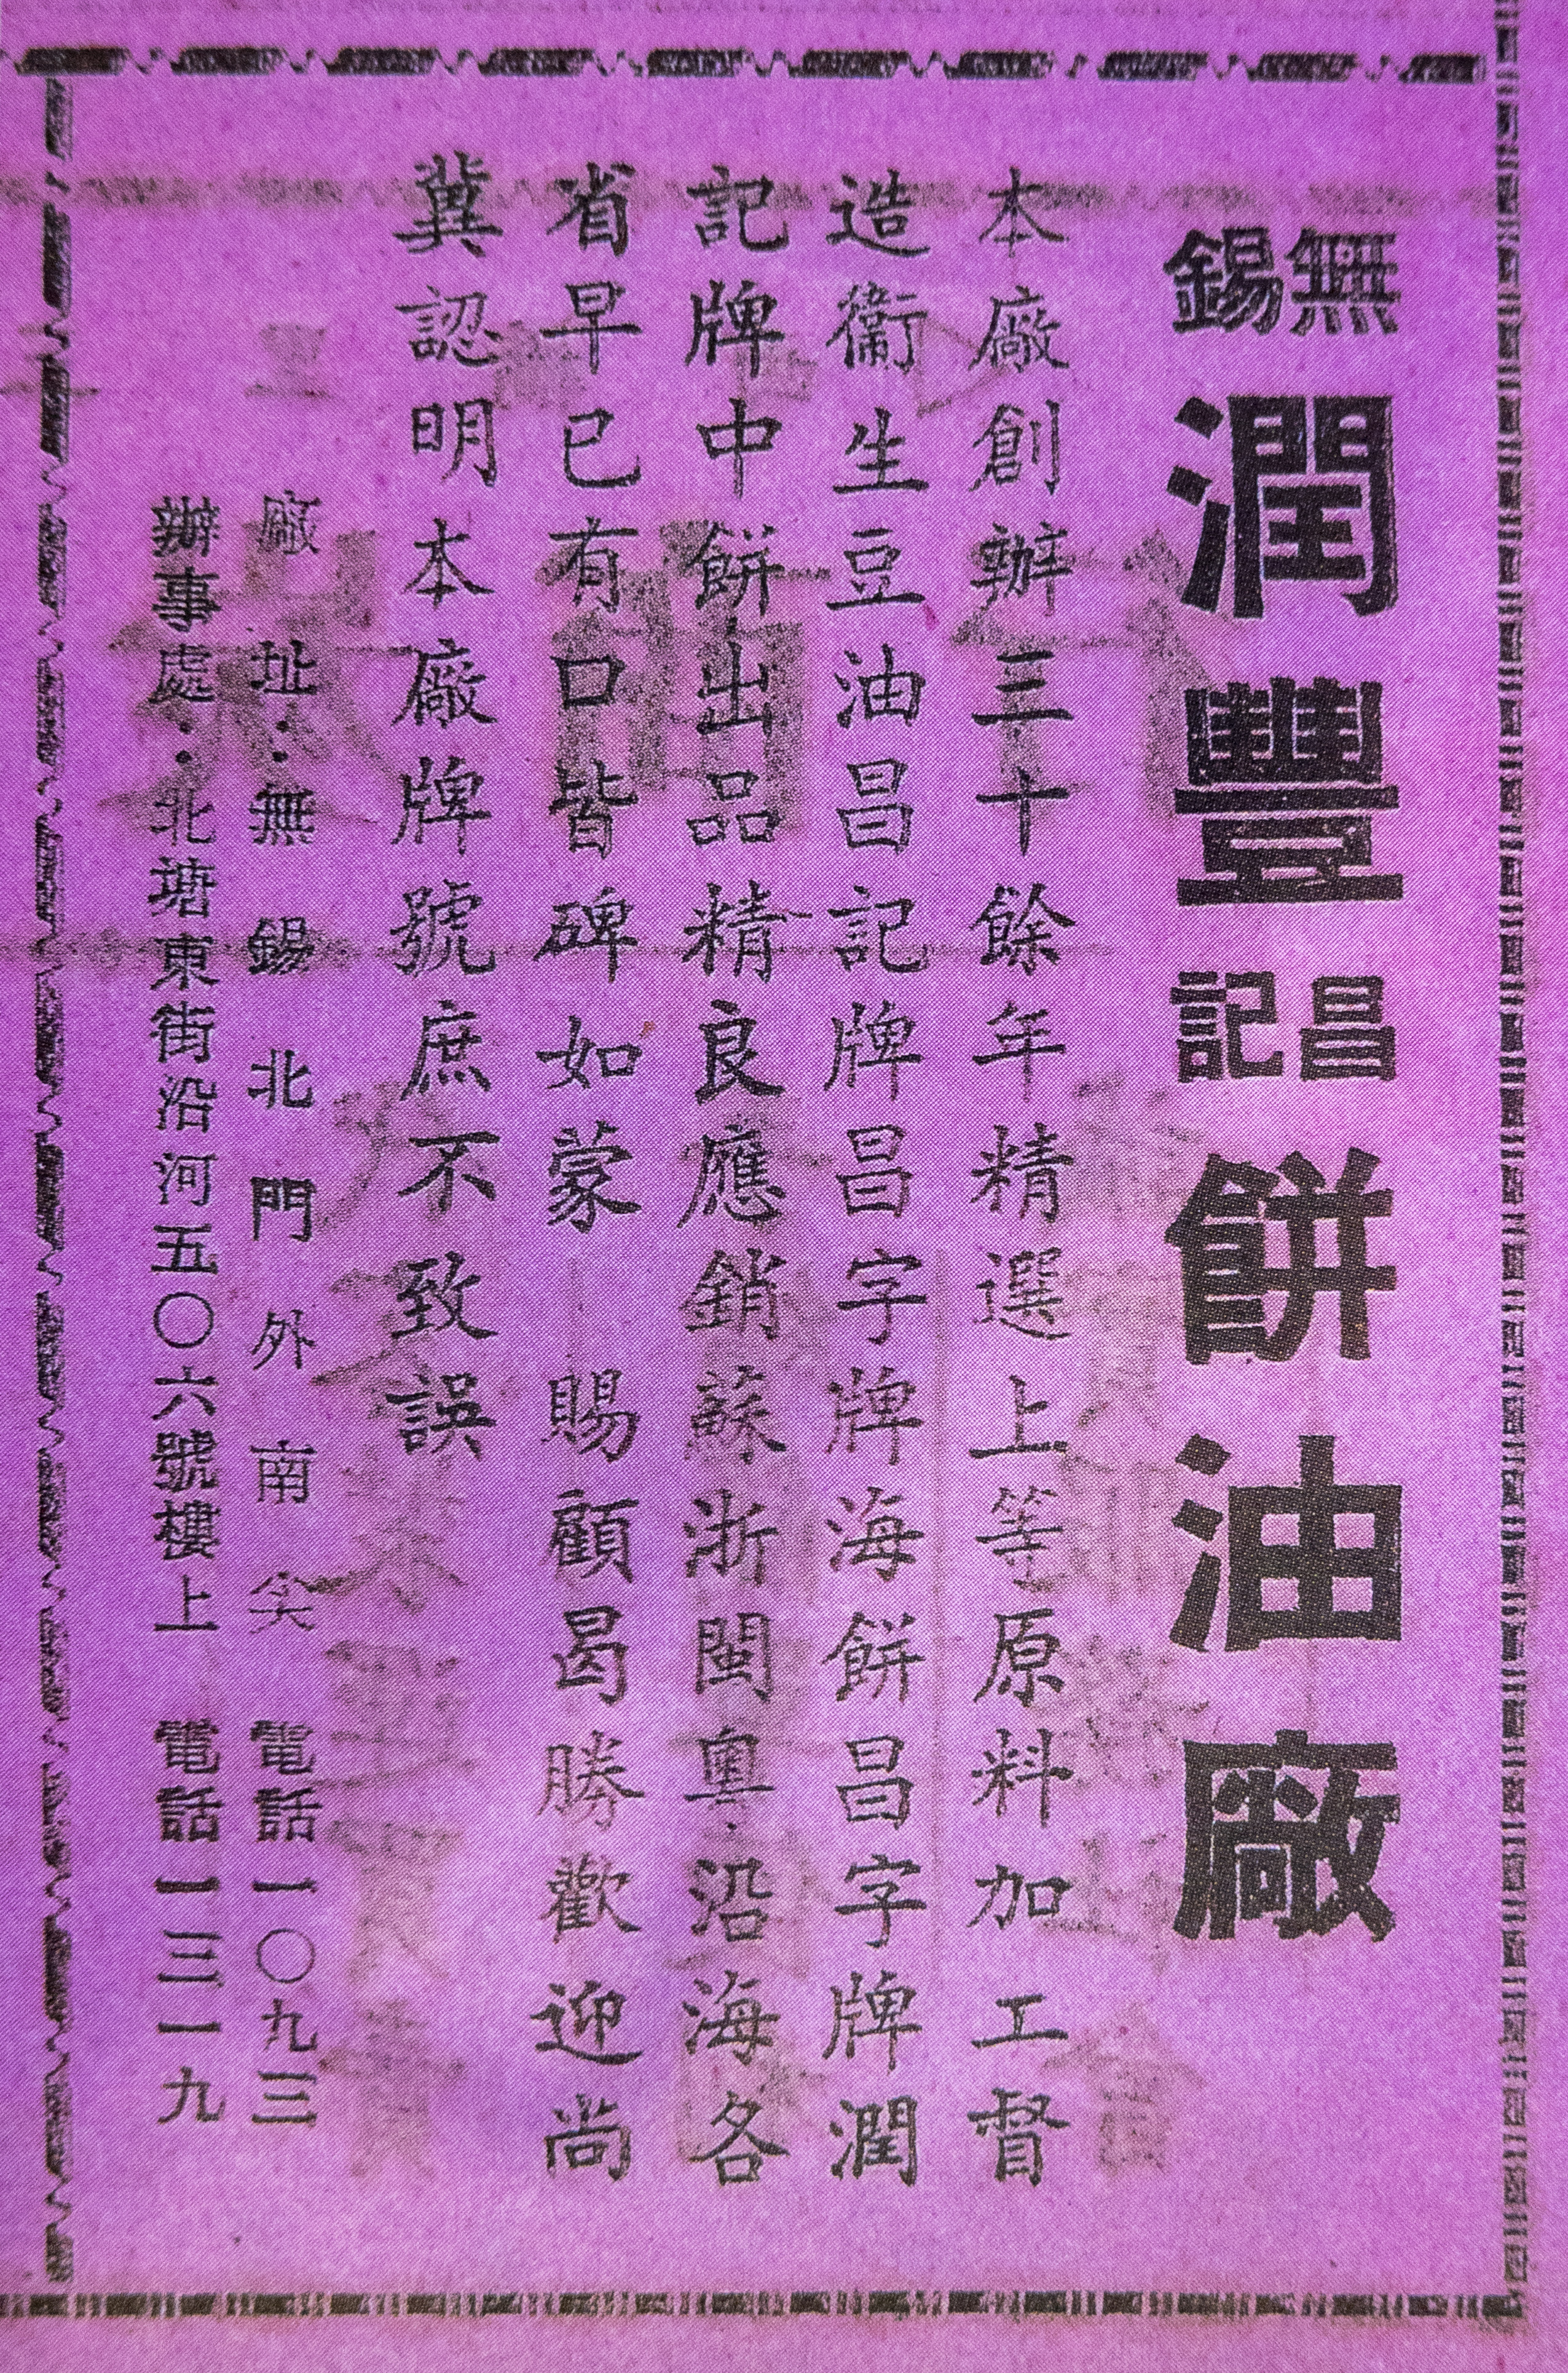 無錫潤豐昌記餅油廠
本廠創辦三十餘年精選上等原料加工督
造衞生豆油昌記牌昌字牌海餅昌字牌潤
記牌中餅出品精良應銷蘇浙閩粵·沿海各
省早已有口皆碑如蒙 賜顧曷勝歡迎尚
冀認明本廠牌號庶不致誤
廠址：無錫北門外南尖 電話一〇九三
辦事處：北塘東街沿河五〇六號樓上 電話一三一九